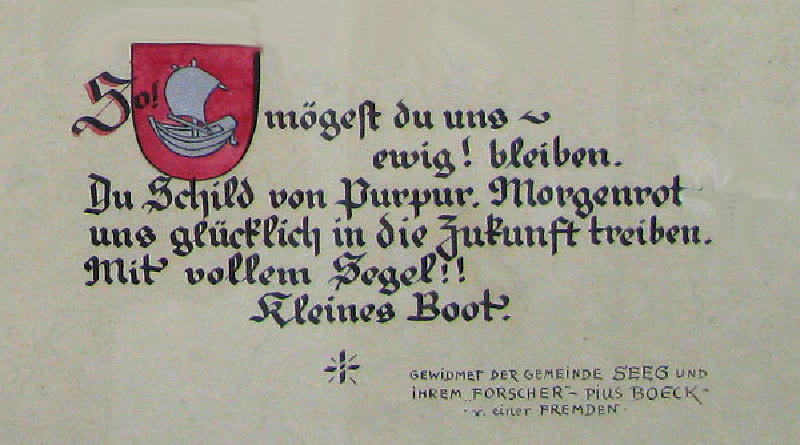 So! mögest du uns ~
ewig! bleiben.
Du Schild von Purpur. Morgenrot
uns glücklich in die Zukunft treiben.
Mit vollem Segel!!
Kleines Boot.
GEWIDMET DER GEMEINDE SEEG UND
IHREM „FORSCHER“ – PIUS BOECK –
· v. einer FREMDEN ·